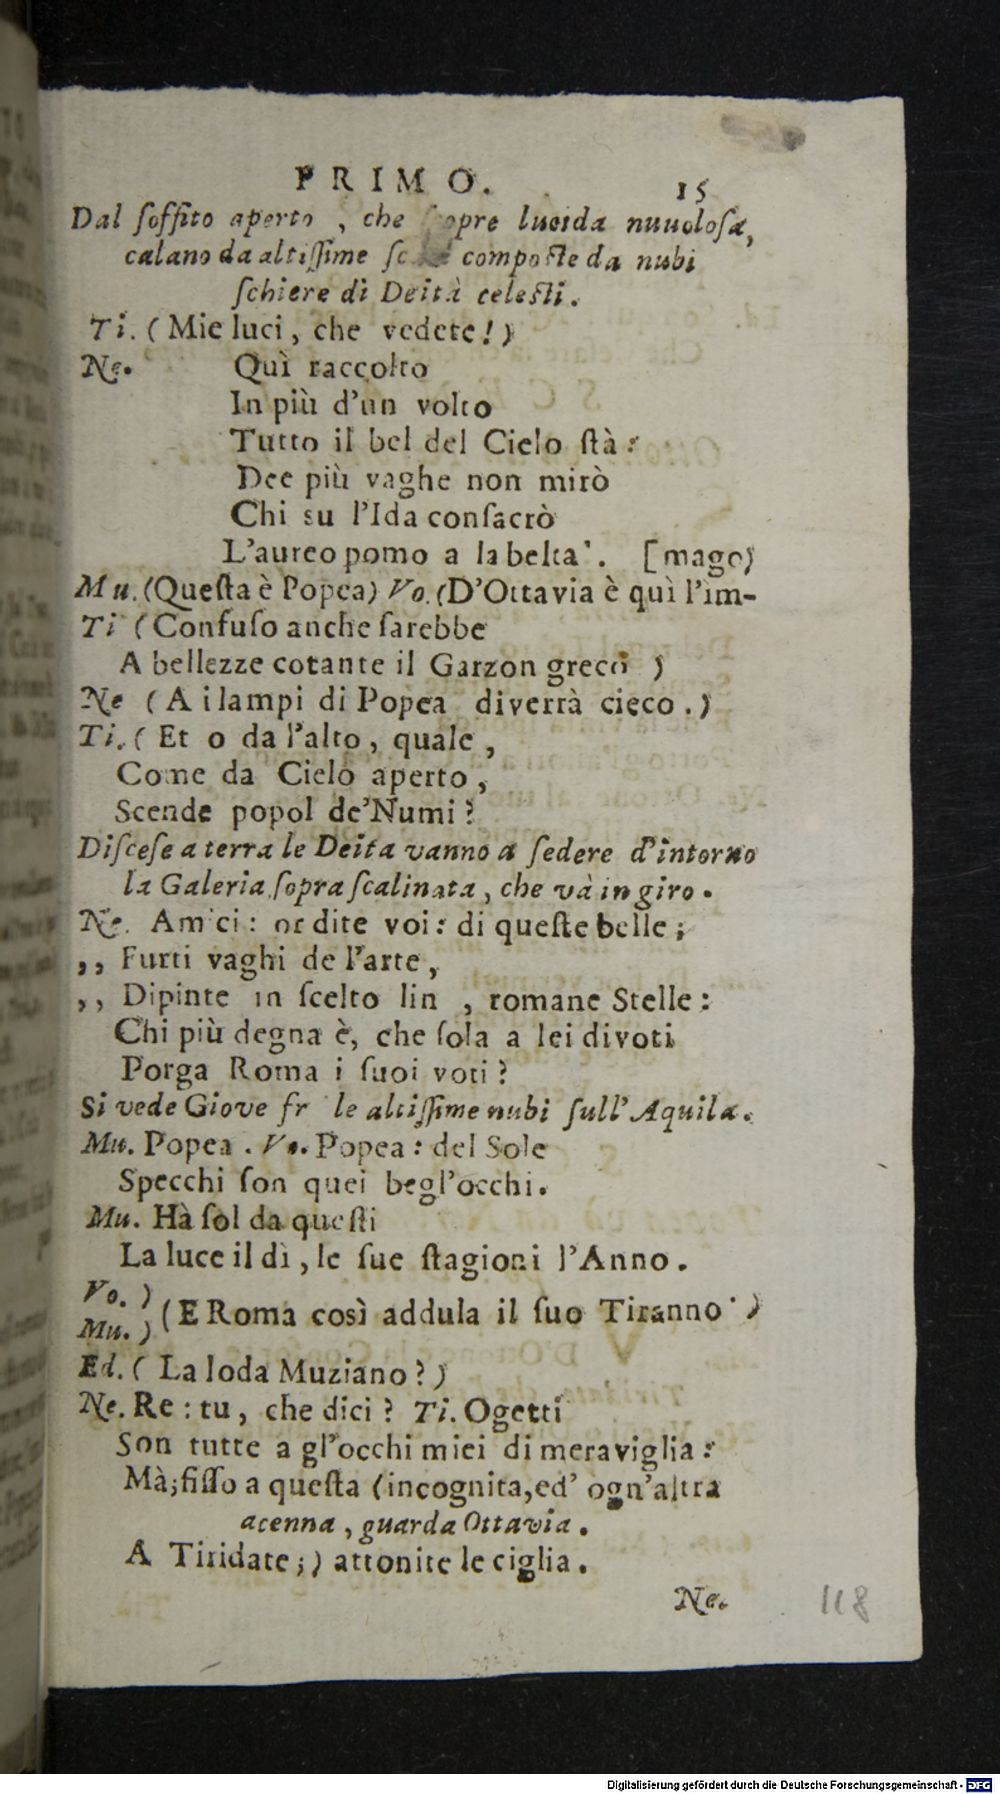 PRIMO. 15
Dal ſoffito aperto , che ſcopre lucida nuuoloſa,
calano da altiſſime compoſte da nubi
ſchiere di Deità celeſti.
Ti. ( Mie luci, che vedete! )
Ne. Quì raccolto
In più d'un volto
Tutto il bel del Cielo ſtà:
Dee più vaghe non mirò
Chi su l'Ida conſacrò
L'aureo pomo a la belta'. [mago)
Mu. (Queſta è Popea) Vo. (D'Ottavia è quì l'im-
Ti (Confuſo anche ſarebbe
A bellezze cotante il Garzon greco )
Ne ( A i lampi di Popea diverrà cieco . )
Ti. ( Et o da l'alto, quale,
Come da Cielo aperto,
Scende popol de'Numi?
Diſceſe a terra le Deita vanno a ſedere d'intorno
la Galeria ſopra ſcalinata, che và in giro.
Ne. Amici: or dite voi: di queſte belle;
,, Furti vaghi de l'arte,
,, Dipinte in ſcelto lin , romane Stelle:
Chi più degna è, che ſola a lei divoti
Porga Roma i ſuoi voti?
Si vede Giove fr le altiſſime nubi ſull'Aquila.
Mu. Popea. Vo. Popea: del Sole
Specchi ſon quei begl'occhi.
Mu. Hà ſol da queſti
La luce il dì, le ſue ſtagioni l'Anno.
Vo. )
Mu. ) (E Roma così addula il ſuo Tiranno )
Ed. ( La loda Muziano? )
Ne. Re: tu, che dici? Ti. Ogetti
Son tutte a gl'occhi miei di meraviglia:
Mà; fiſſo a queſta (incognita, ed' ogn'altra
acenna, guarda Ottavia.
A Tiridate; ) attonite le ciglia.
Ne.
118
Digitalisierung gefördert durch die Deutsche Forschungsgemeinschaft - DFG